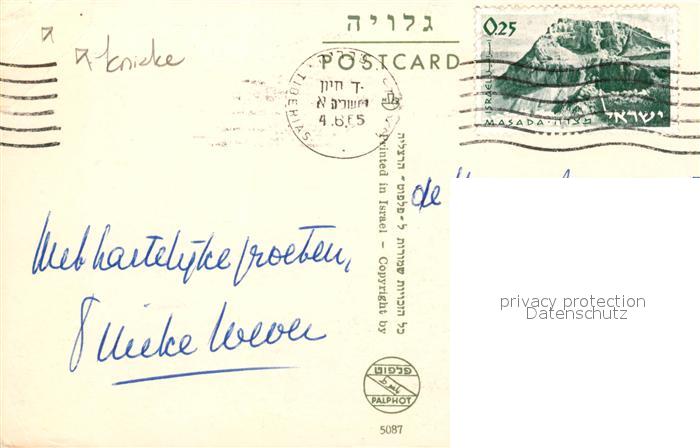 גלויה
POSTCARD
knicke
TIBERIAS
4.6.65
0.25
ISRAEL
MASADA · מצדה
ישראל
de
Met hartelijke groeten,
Mieke Wever
כל הזכויות שמורות ל-פלפוט - הרצליה
Printed in Israel - Copyright by
פלפוט
PALPHOT
5087
privacy protection
Datenschutz